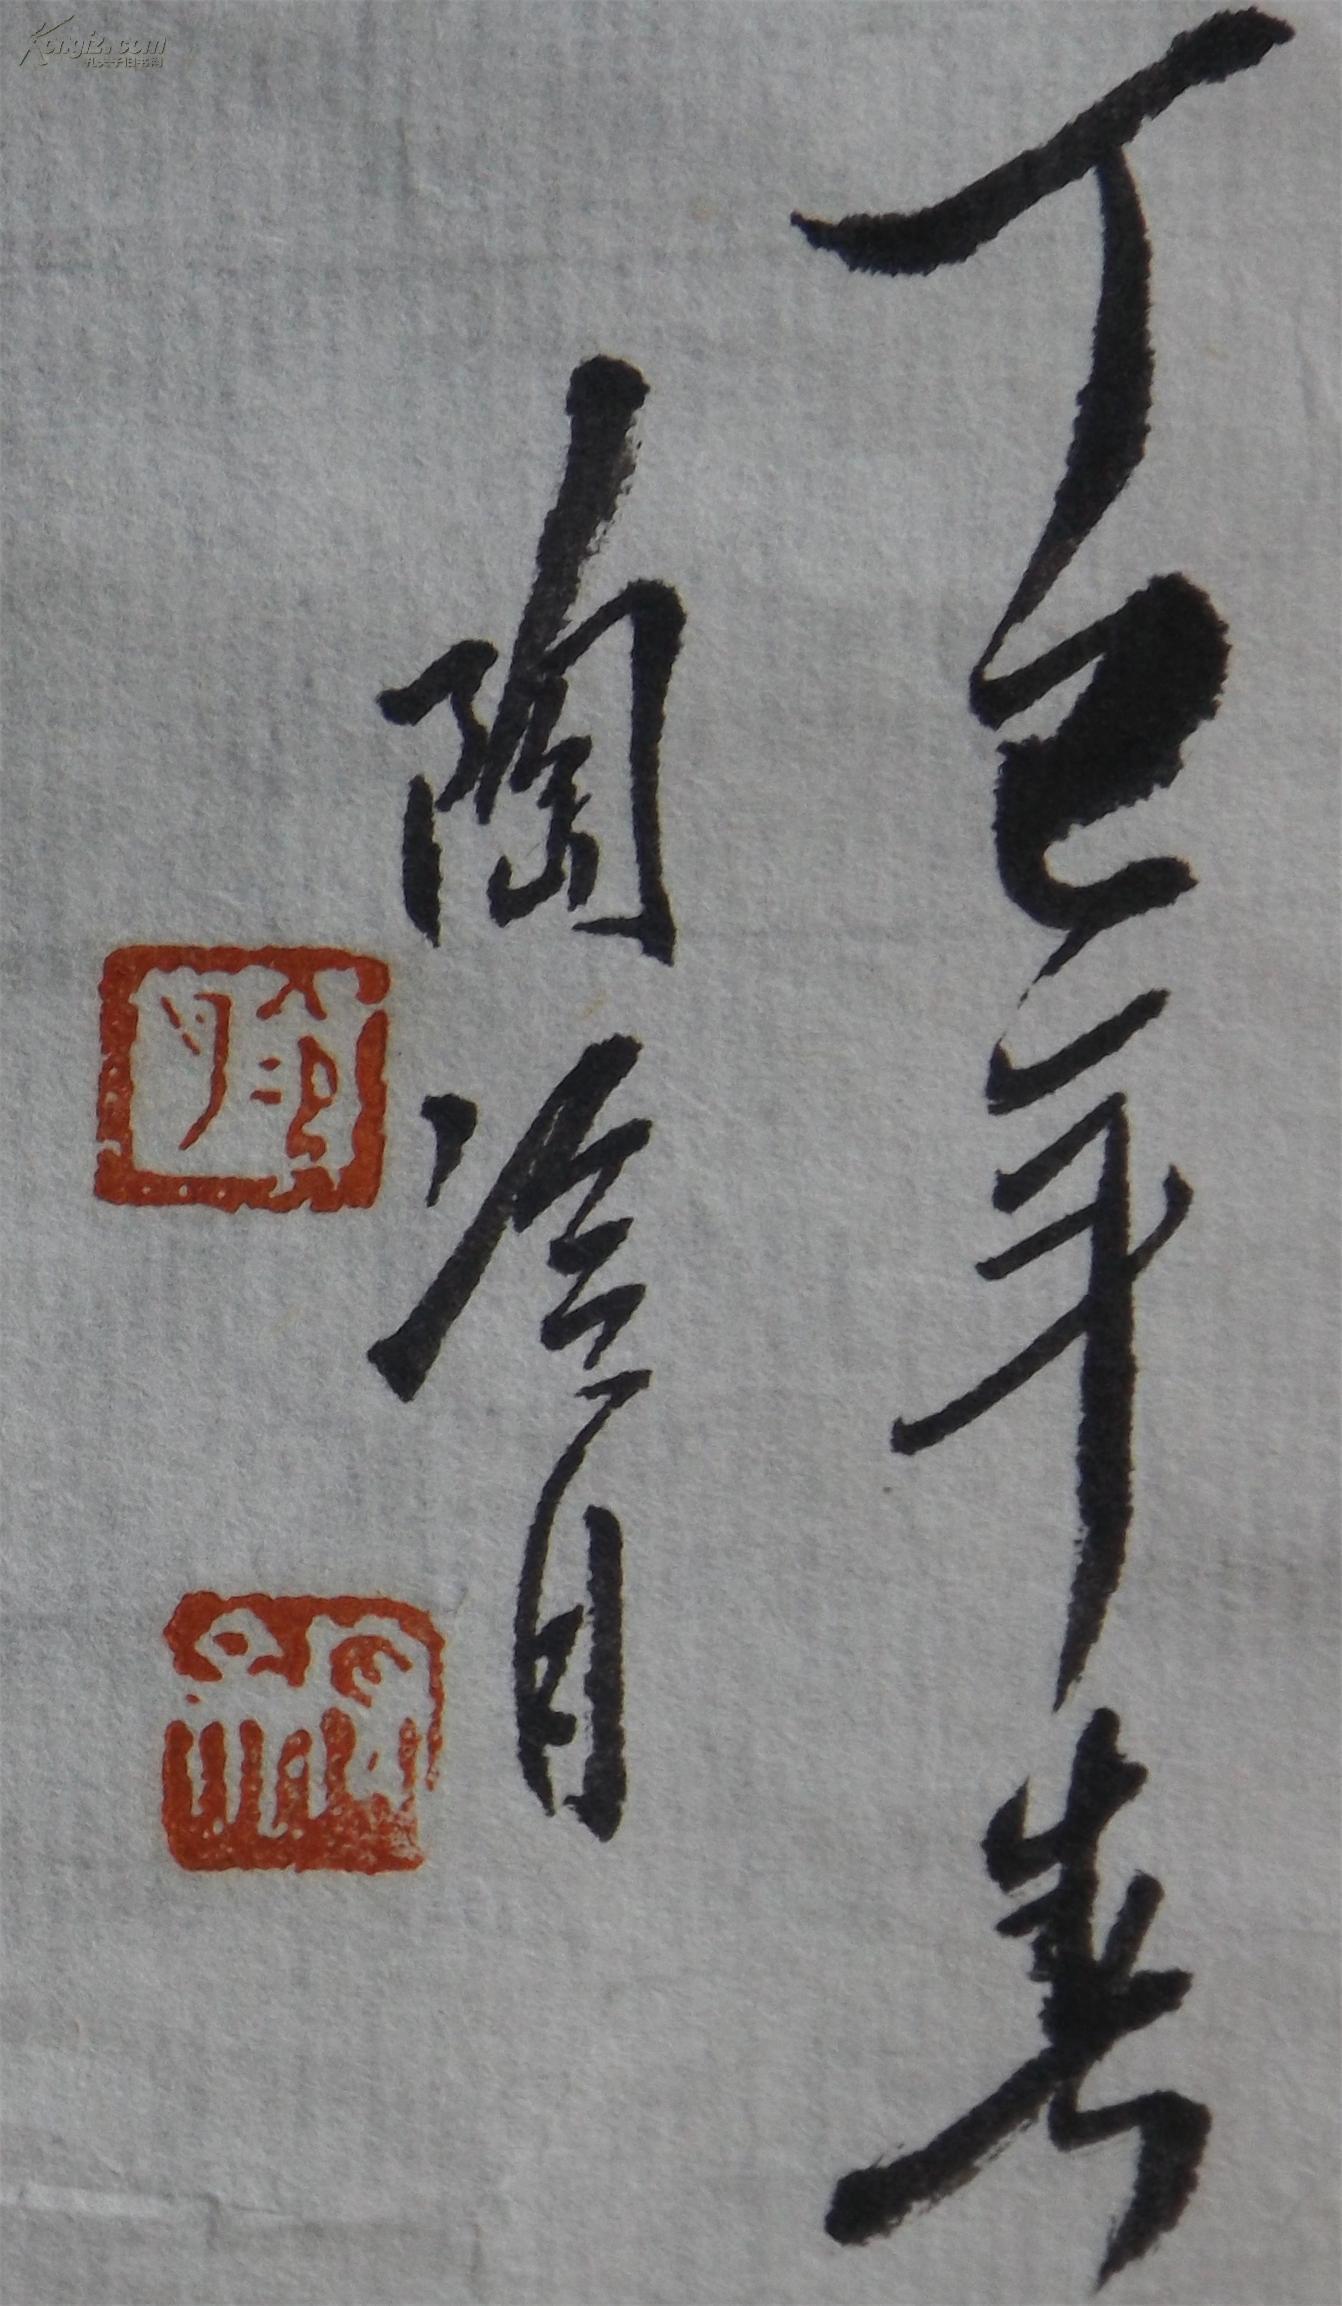 丁巳年春
陶冷月
Kongfz.com
孔夫子旧书网